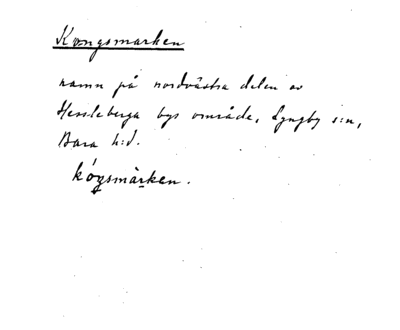 Kongsmarken
namn på nordvästra delen av
Hessleberga bys område, Lyngby s:n,
Bara h:d.
kógsmàrken.